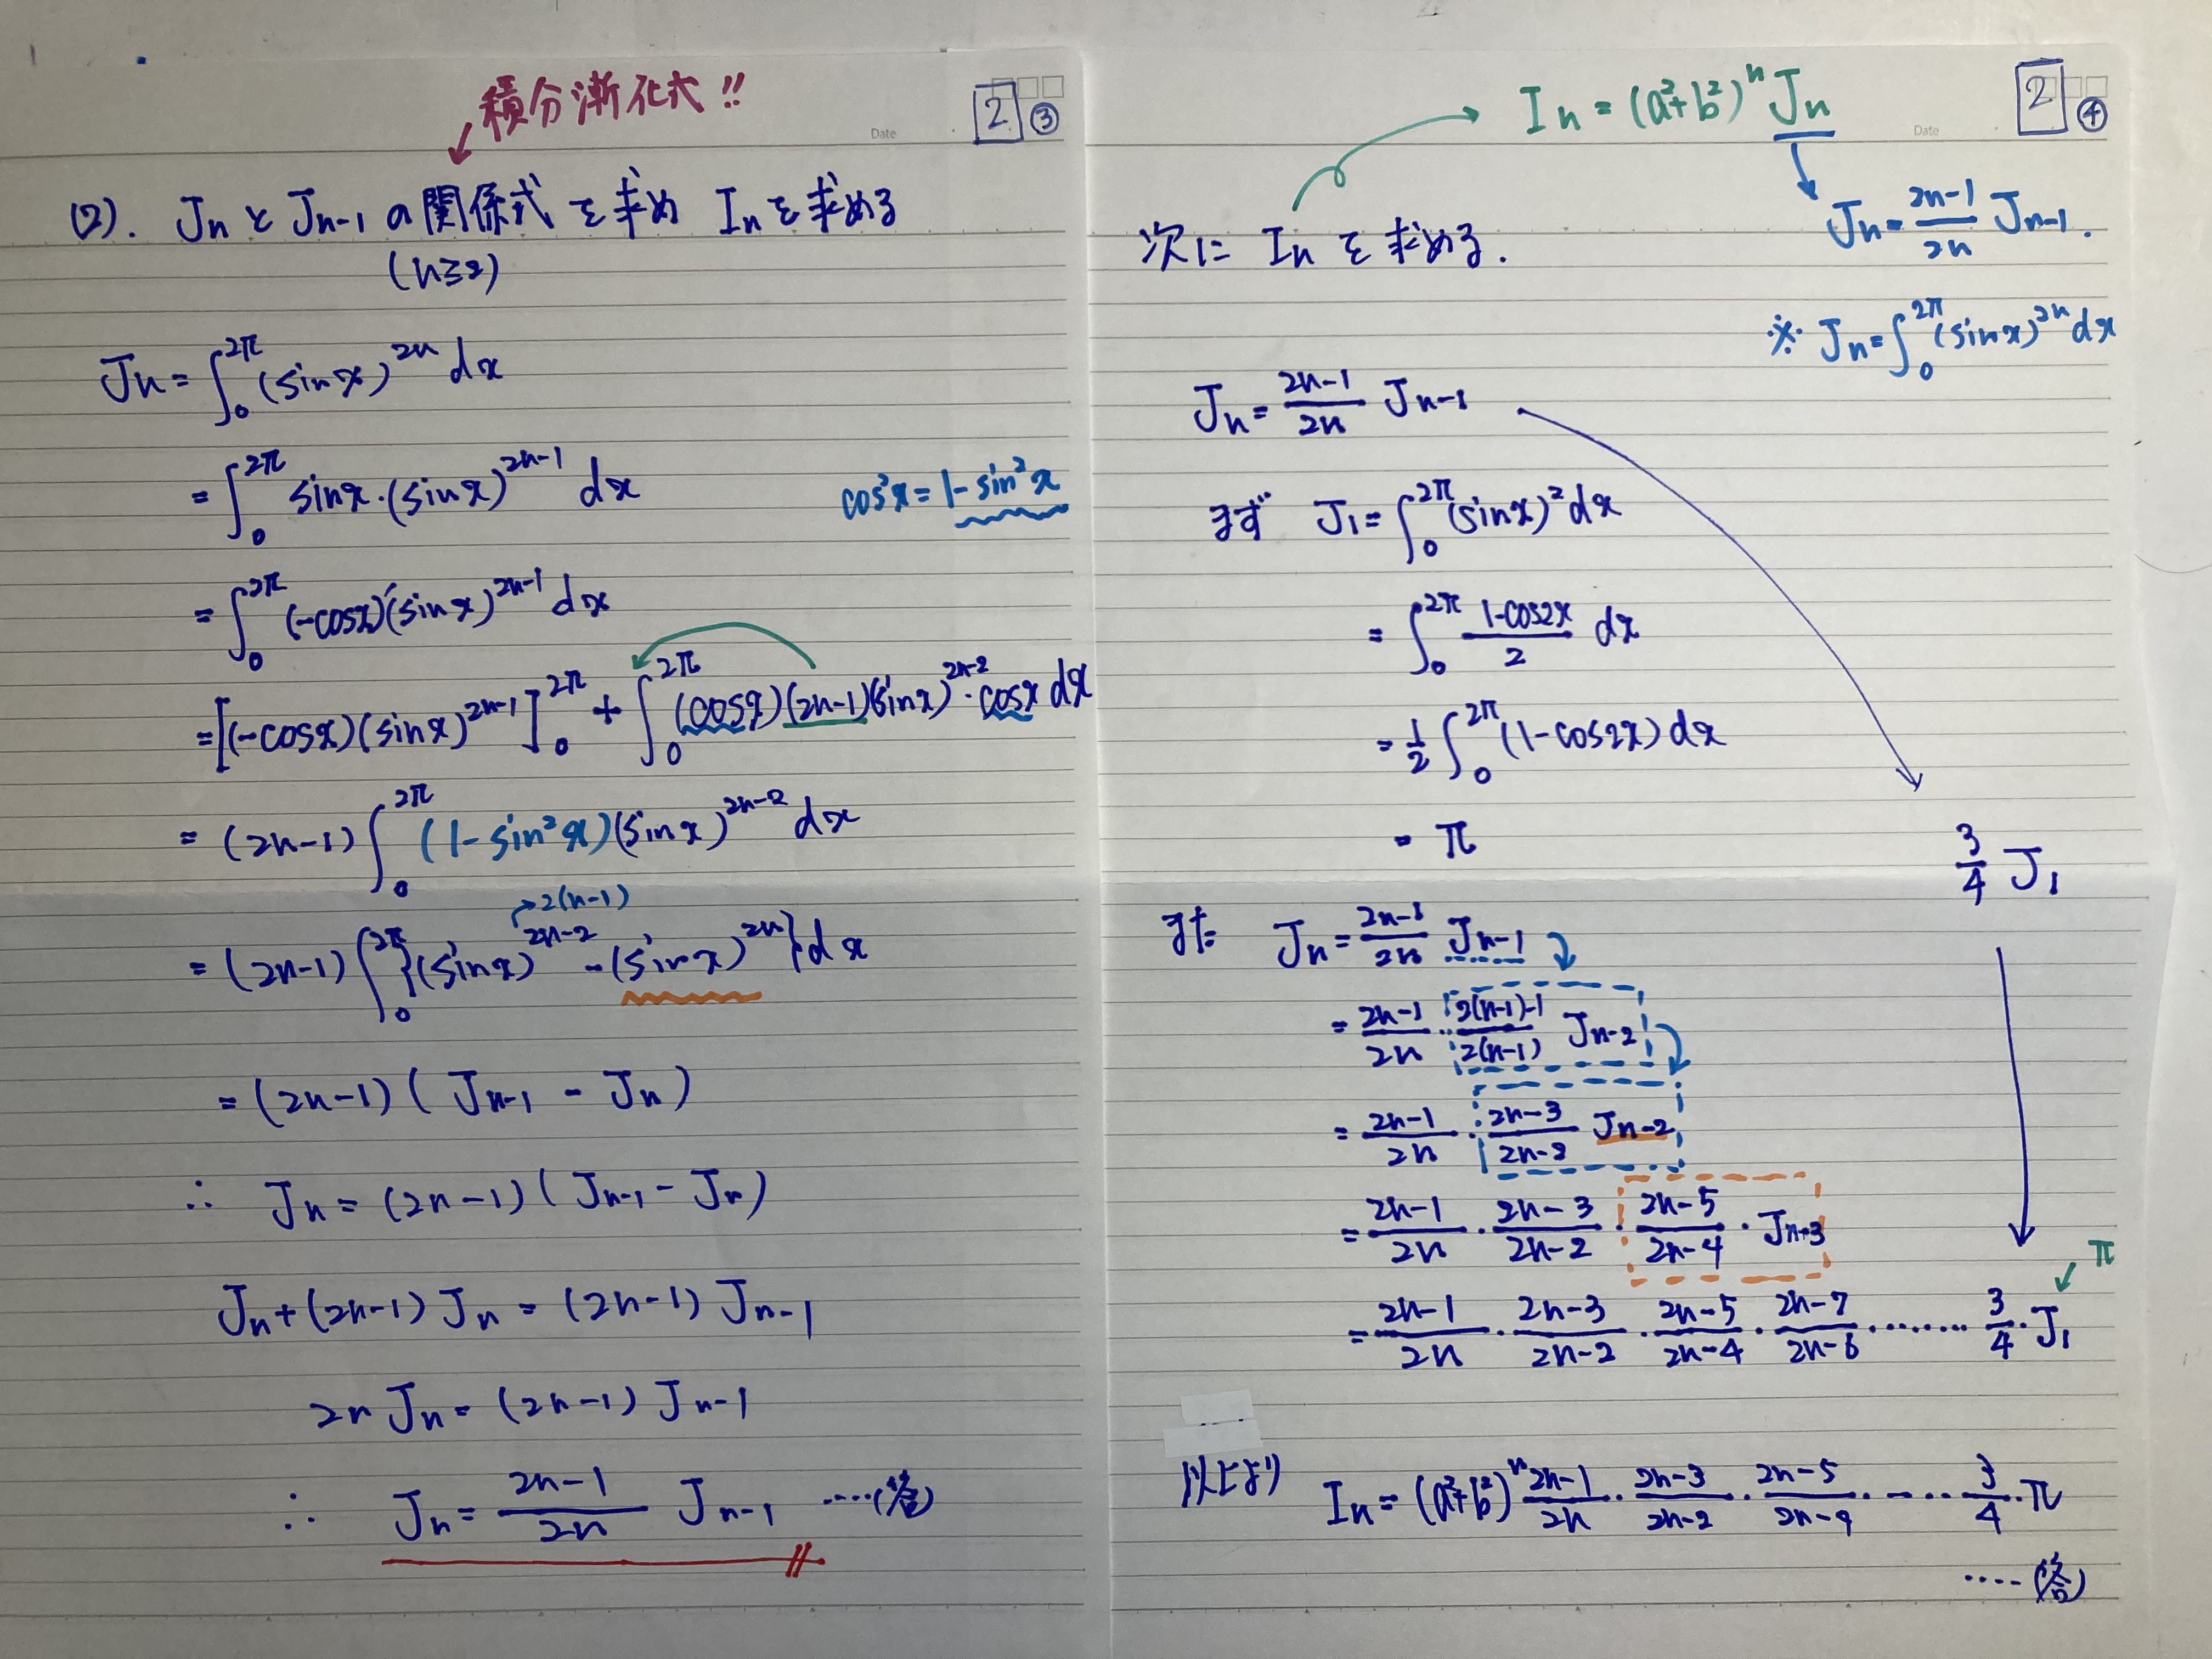 積分漸化式!!
2 ③
Date
(2). JnとJn-1の関係式を求め Inを求める
(n≧2)
Jn = ∫₀^2π (sinx)^2n dx
= ∫₀^2π sinx・(sinx)^2n-1 dx
cos²x = 1-sin²x
= ∫₀^2π (-cosx)'(sinx)^2n-1 dx
= [(-cosx)(sinx)^2n-1]₀^2π + ∫₀^2π (cosx)(2n-1)(sinx)^2n-2・cosx dx
= (2n-1) ∫₀^2π (1-sin²x)(sinx)^2n-2 dx
→2(n-1)
= (2n-1) ∫₀^2π {(sinx)^2n-2 - (sinx)^2n} dx
= (2n-1) ( Jn-1 - Jn )
∴ Jn = (2n-1) ( Jn-1 - Jn )
Jn + (2n-1) Jn = (2n-1) Jn-1
2n Jn = (2n-1) Jn-1
∴ Jn = (2n-1)/(2n) Jn-1 ‥‥(答)
In = (a²+b²)^n Jn
2 ④
Date
Jn = (2n-1)/(2n) Jn-1.
次に In を求める.
※ Jn = ∫₀^2π (sinx)^2n dx
Jn = (2n-1)/(2n) Jn-1
まず J1 = ∫₀^2π (sinx)² dx
= ∫₀^2π (1-cos2x)/2 dx
= 1/2 ∫₀^2π (1-cos2x) dx
= π
3/4 J1
また Jn = (2n-1)/(2n) Jn-1
= (2n-1)/(2n)・(2(n-1)-1)/(2(n-1)) Jn-2
= (2n-1)/(2n)・(2n-3)/(2n-2) Jn-2
= (2n-1)/(2n)・(2n-3)/(2n-2)・(2n-5)/(2n-4)・Jn-3
π
= (2n-1)/(2n)・(2n-3)/(2n-2)・(2n-5)/(2n-4)・(2n-7)/(2n-6)・‥‥‥‥ 3/4・J1
以上より In = (a²+b²)^n (2n-1)/(2n)・(2n-3)/(2n-2)・(2n-5)/(2n-4)・‥‥ 3/4・π
‥‥(答)